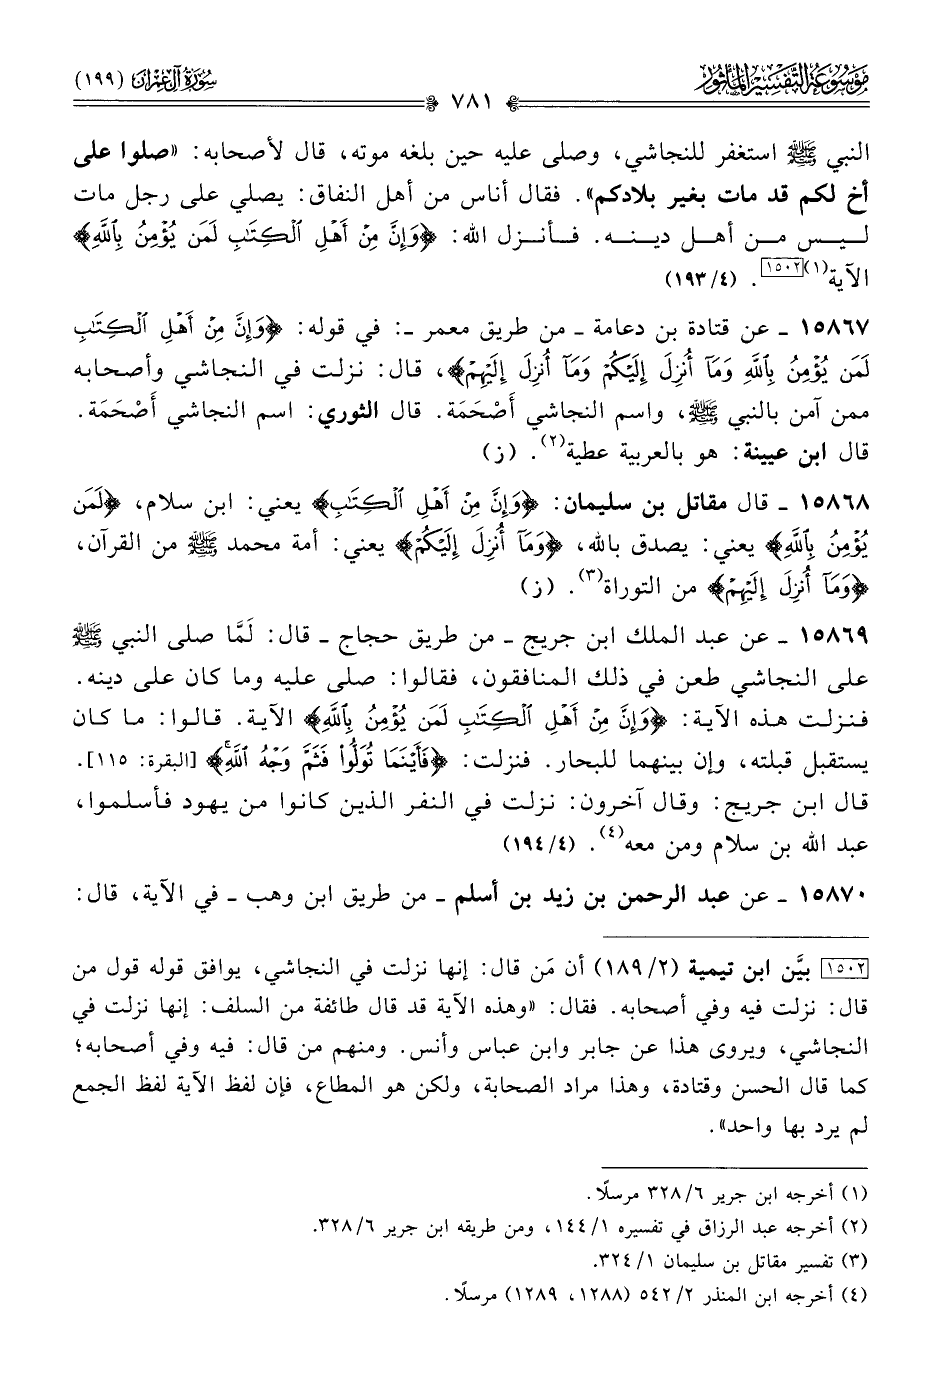 موسوعة التفسير المأثور
سورة آل عمران (١٩٩)
٧٨١
النبي ﷺ استغفر للنجاشي، وصلى عليه حين بلغه موته، قال لأصحابه: «صلوا على
أخ لكم قد مات بغير بلادكم». فقال أناس من أهل النفاق: يصلي على رجل مات
ليس من أهل دينه. فأنزل الله: ﴿وَإِنَّ مِنْ أَهْلِ ٱلْكِتَٰبِ لَمَن يُؤْمِنُ بِٱللَّهِ﴾
الآية(١)[١٥٠٢]. (٤/١٩٣)
١٥٨٦٧ ـ عن قتادة بن دعامة ـ من طريق معمر ـ: في قوله: ﴿وَإِنَّ مِنْ أَهْلِ ٱلْكِتَٰبِ
لَمَن يُؤْمِنُ بِٱللَّهِ وَمَآ أُنزِلَ إِلَيْكُمْ وَمَآ أُنزِلَ إِلَيْهِمْ﴾، قال: نزلت في النجاشي وأصحابه
ممن آمن بالنبي ﷺ، واسم النجاشي أَصْحَمَة. قال الثوري: اسم النجاشي أَصْحَمَة.
قال ابن عيينة: هو بالعربية عطية(٢). (ز)
١٥٨٦٨ ـ قال مقاتل بن سليمان: ﴿وَإِنَّ مِنْ أَهْلِ ٱلْكِتَٰبِ﴾ يعني: ابن سلام، ﴿لَمَن
يُؤْمِنُ بِٱللَّهِ﴾ يعني: يصدق بالله، ﴿وَمَآ أُنزِلَ إِلَيْكُمْ﴾ يعني: أمة محمد ﷺ من القرآن،
﴿وَمَآ أُنزِلَ إِلَيْهِمْ﴾ من التوراة(٣). (ز)
١٥٨٦٩ ـ عن عبد الملك ابن جريج ـ من طريق حجاج ـ قال: لَمَّا صلى النبي ﷺ
على النجاشي طعن في ذلك المنافقون، فقالوا: صلى عليه وما كان على دينه.
فنزلت هذه الآية: ﴿وَإِنَّ مِنْ أَهْلِ ٱلْكِتَٰبِ لَمَن يُؤْمِنُ بِٱللَّهِ﴾ الآية. قالوا: ما كان
يستقبل قبلته، وإن بينهما للبحار. فنزلت: ﴿فَأَيْنَمَا تُوَلُّواْ فَثَمَّ وَجْهُ ٱللَّهِ﴾ [البقرة: ١١٥].
قال ابن جريج: وقال آخرون: نزلت في النفر الذين كانوا من يهود فأسلموا،
عبد الله بن سلام ومن معه(٤). (٤/١٩٤)
١٥٨٧٠ ـ عن عبد الرحمن بن زيد بن أسلم ـ من طريق ابن وهب ـ في الآية، قال:
[١٥٠٢] بيَّن ابن تيمية (٢/١٨٩) أن مَن قال: إنها نزلت في النجاشي، يوافق قوله قول من
قال: نزلت فيه وفي أصحابه. فقال: «وهذه الآية قد قال طائفة من السلف: إنها نزلت في
النجاشي، ويروى هذا عن جابر وابن عباس وأنس. ومنهم من قال: فيه وفي أصحابه؛
كما قال الحسن وقتادة، وهذا مراد الصحابة، ولكن هو المطاع، فإن لفظ الآية لفظ الجمع
لم يرد بها واحد».
(١) أخرجه ابن جرير ٦/٣٢٨ مرسلًا.
(٢) أخرجه عبد الرزاق في تفسيره ١/١٤٤، ومن طريقه ابن جرير ٦/٣٢٨.
(٣) تفسير مقاتل بن سليمان ١/٣٢٤.
(٤) أخرجه ابن المنذر ٢/٥٤٢ (١٢٨٨، ١٢٨٩) مرسلًا.